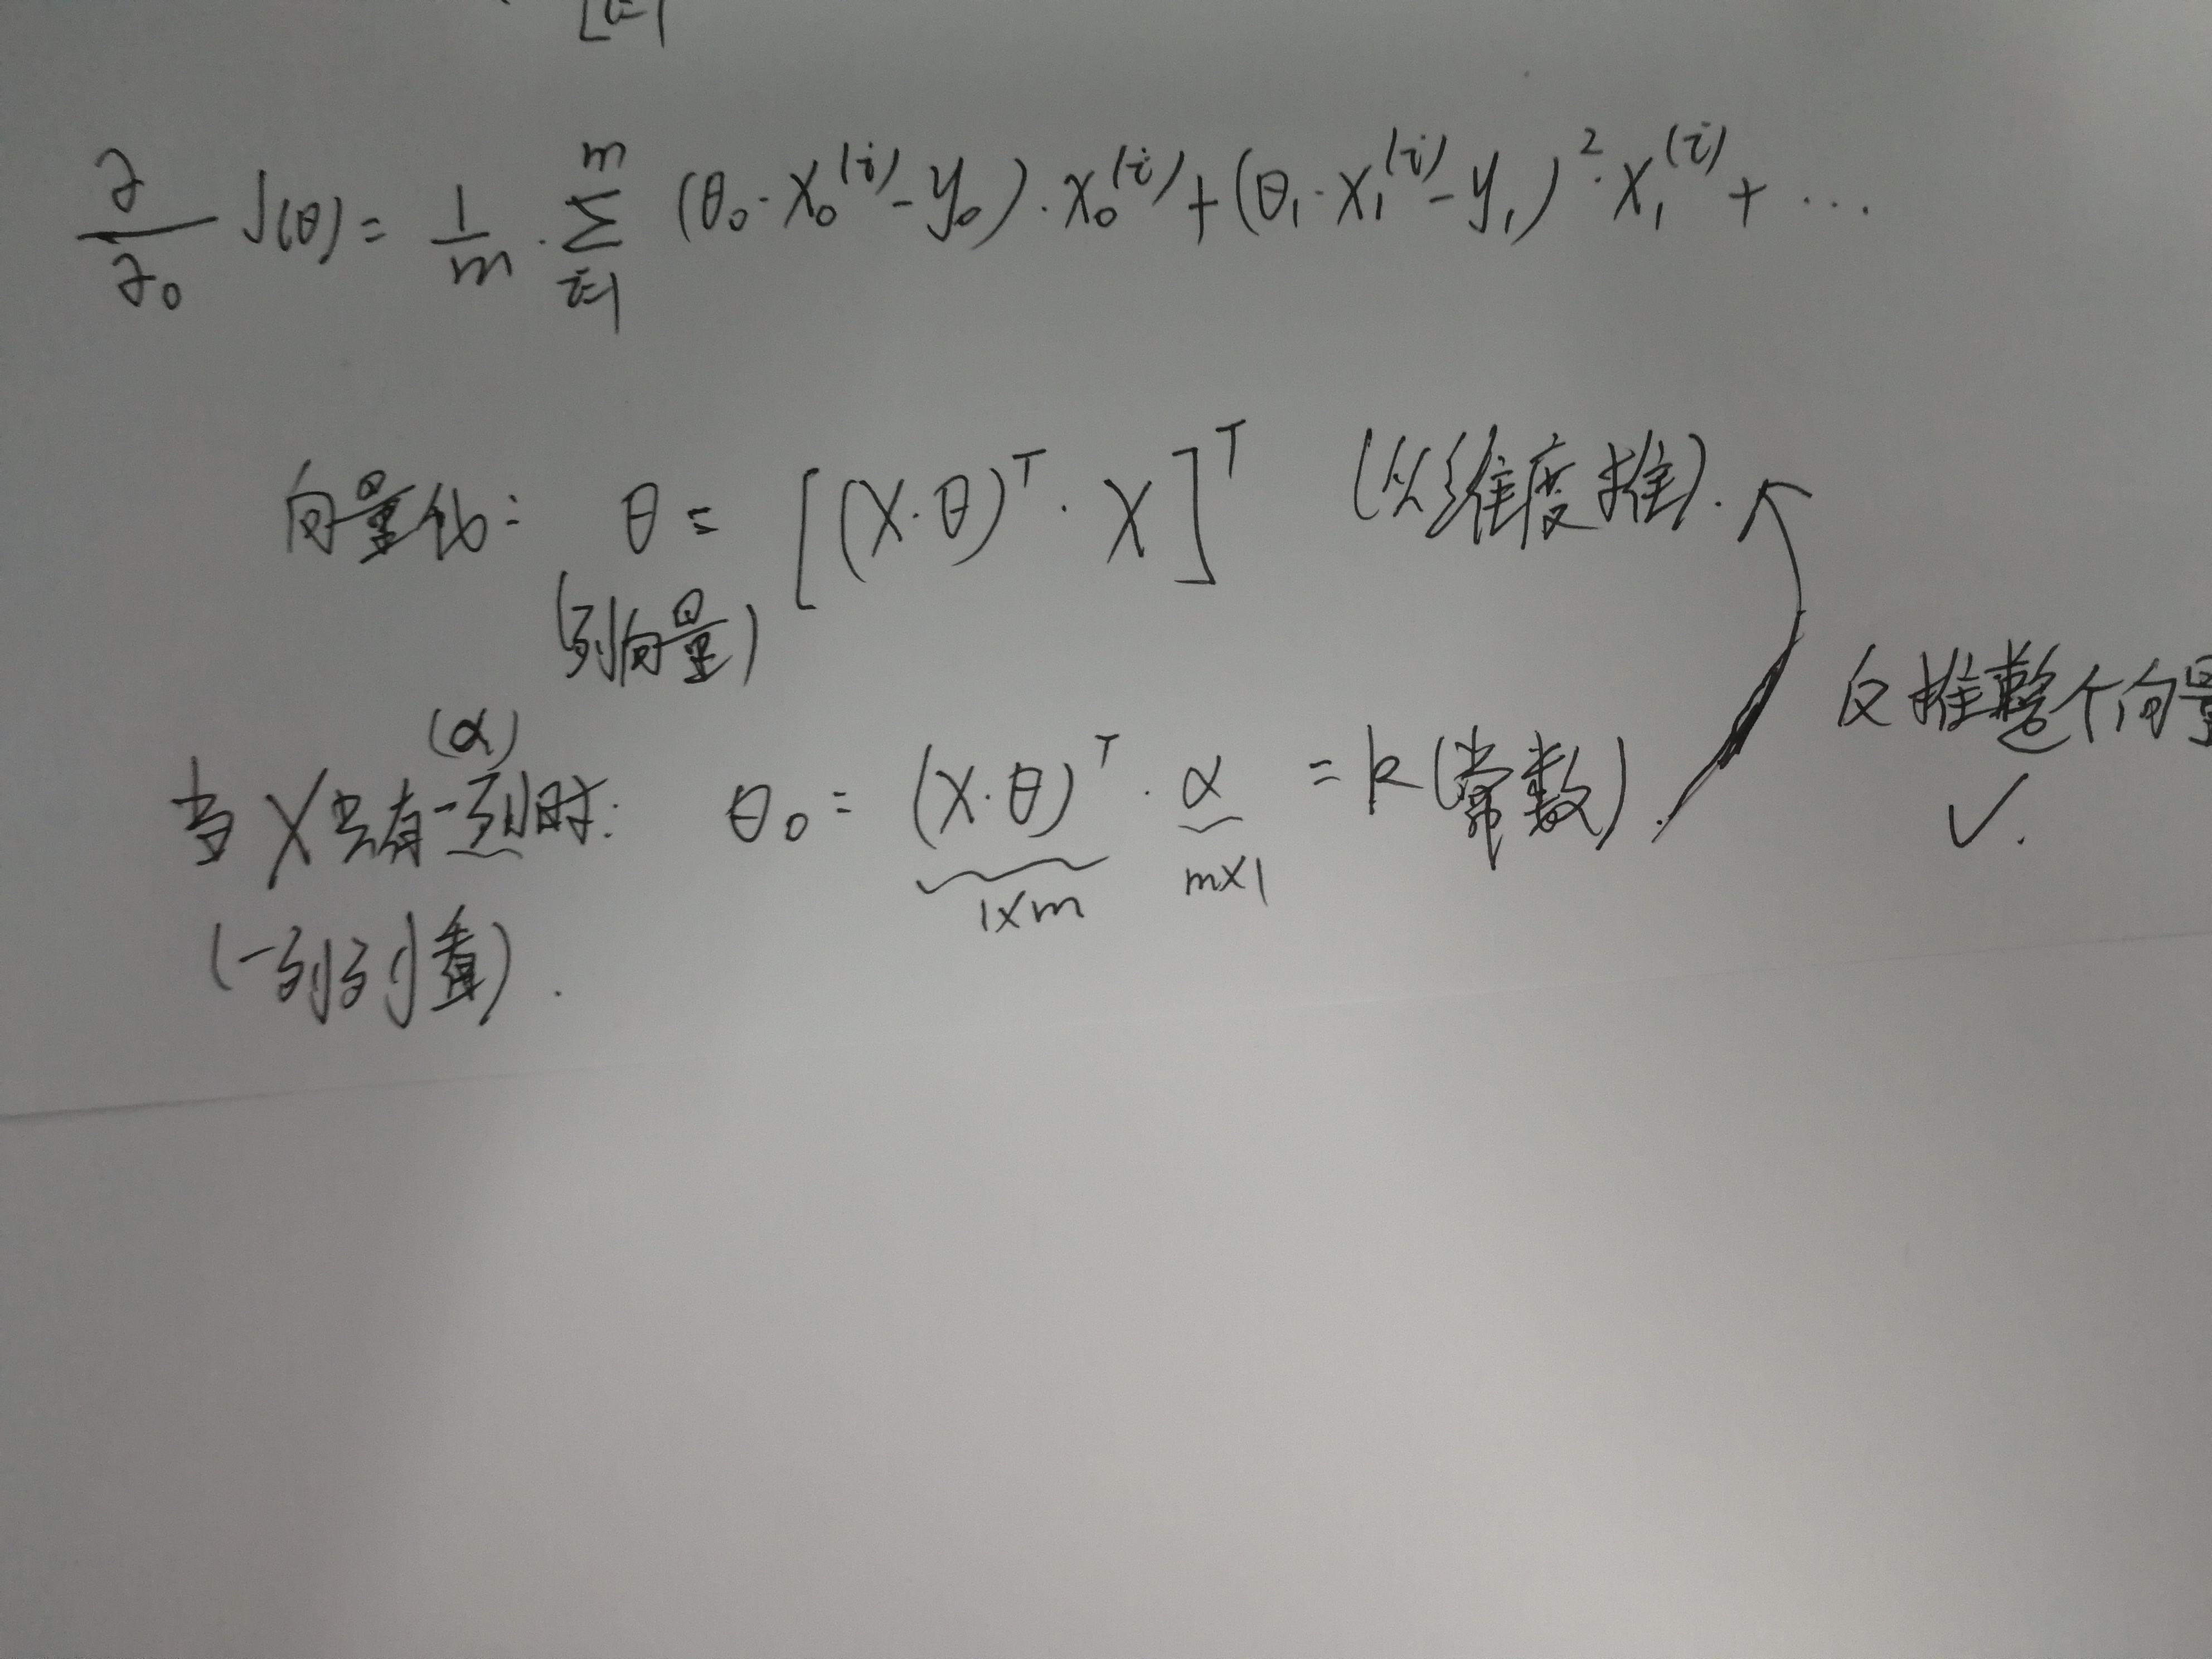 ∂/∂₀ J(θ) = 1/m · Σ_{i=1}^{m} (θ₀·x₀⁽ⁱ⁾ - y₀)·x₀⁽ⁱ⁾ + (θ₁·x₁⁽ⁱ⁾ - y₁)²·x₁⁽ⁱ⁾ + ...
向量化: θ = [(X·θ)ᵀ · X]ᵀ (从维度推).
(列向量)
反推整个向量 ✓.
(α)
当X只有一列时: θ₀ = (X·θ)ᵀ · α = k (常数).
1×m m×1
(一列列看).